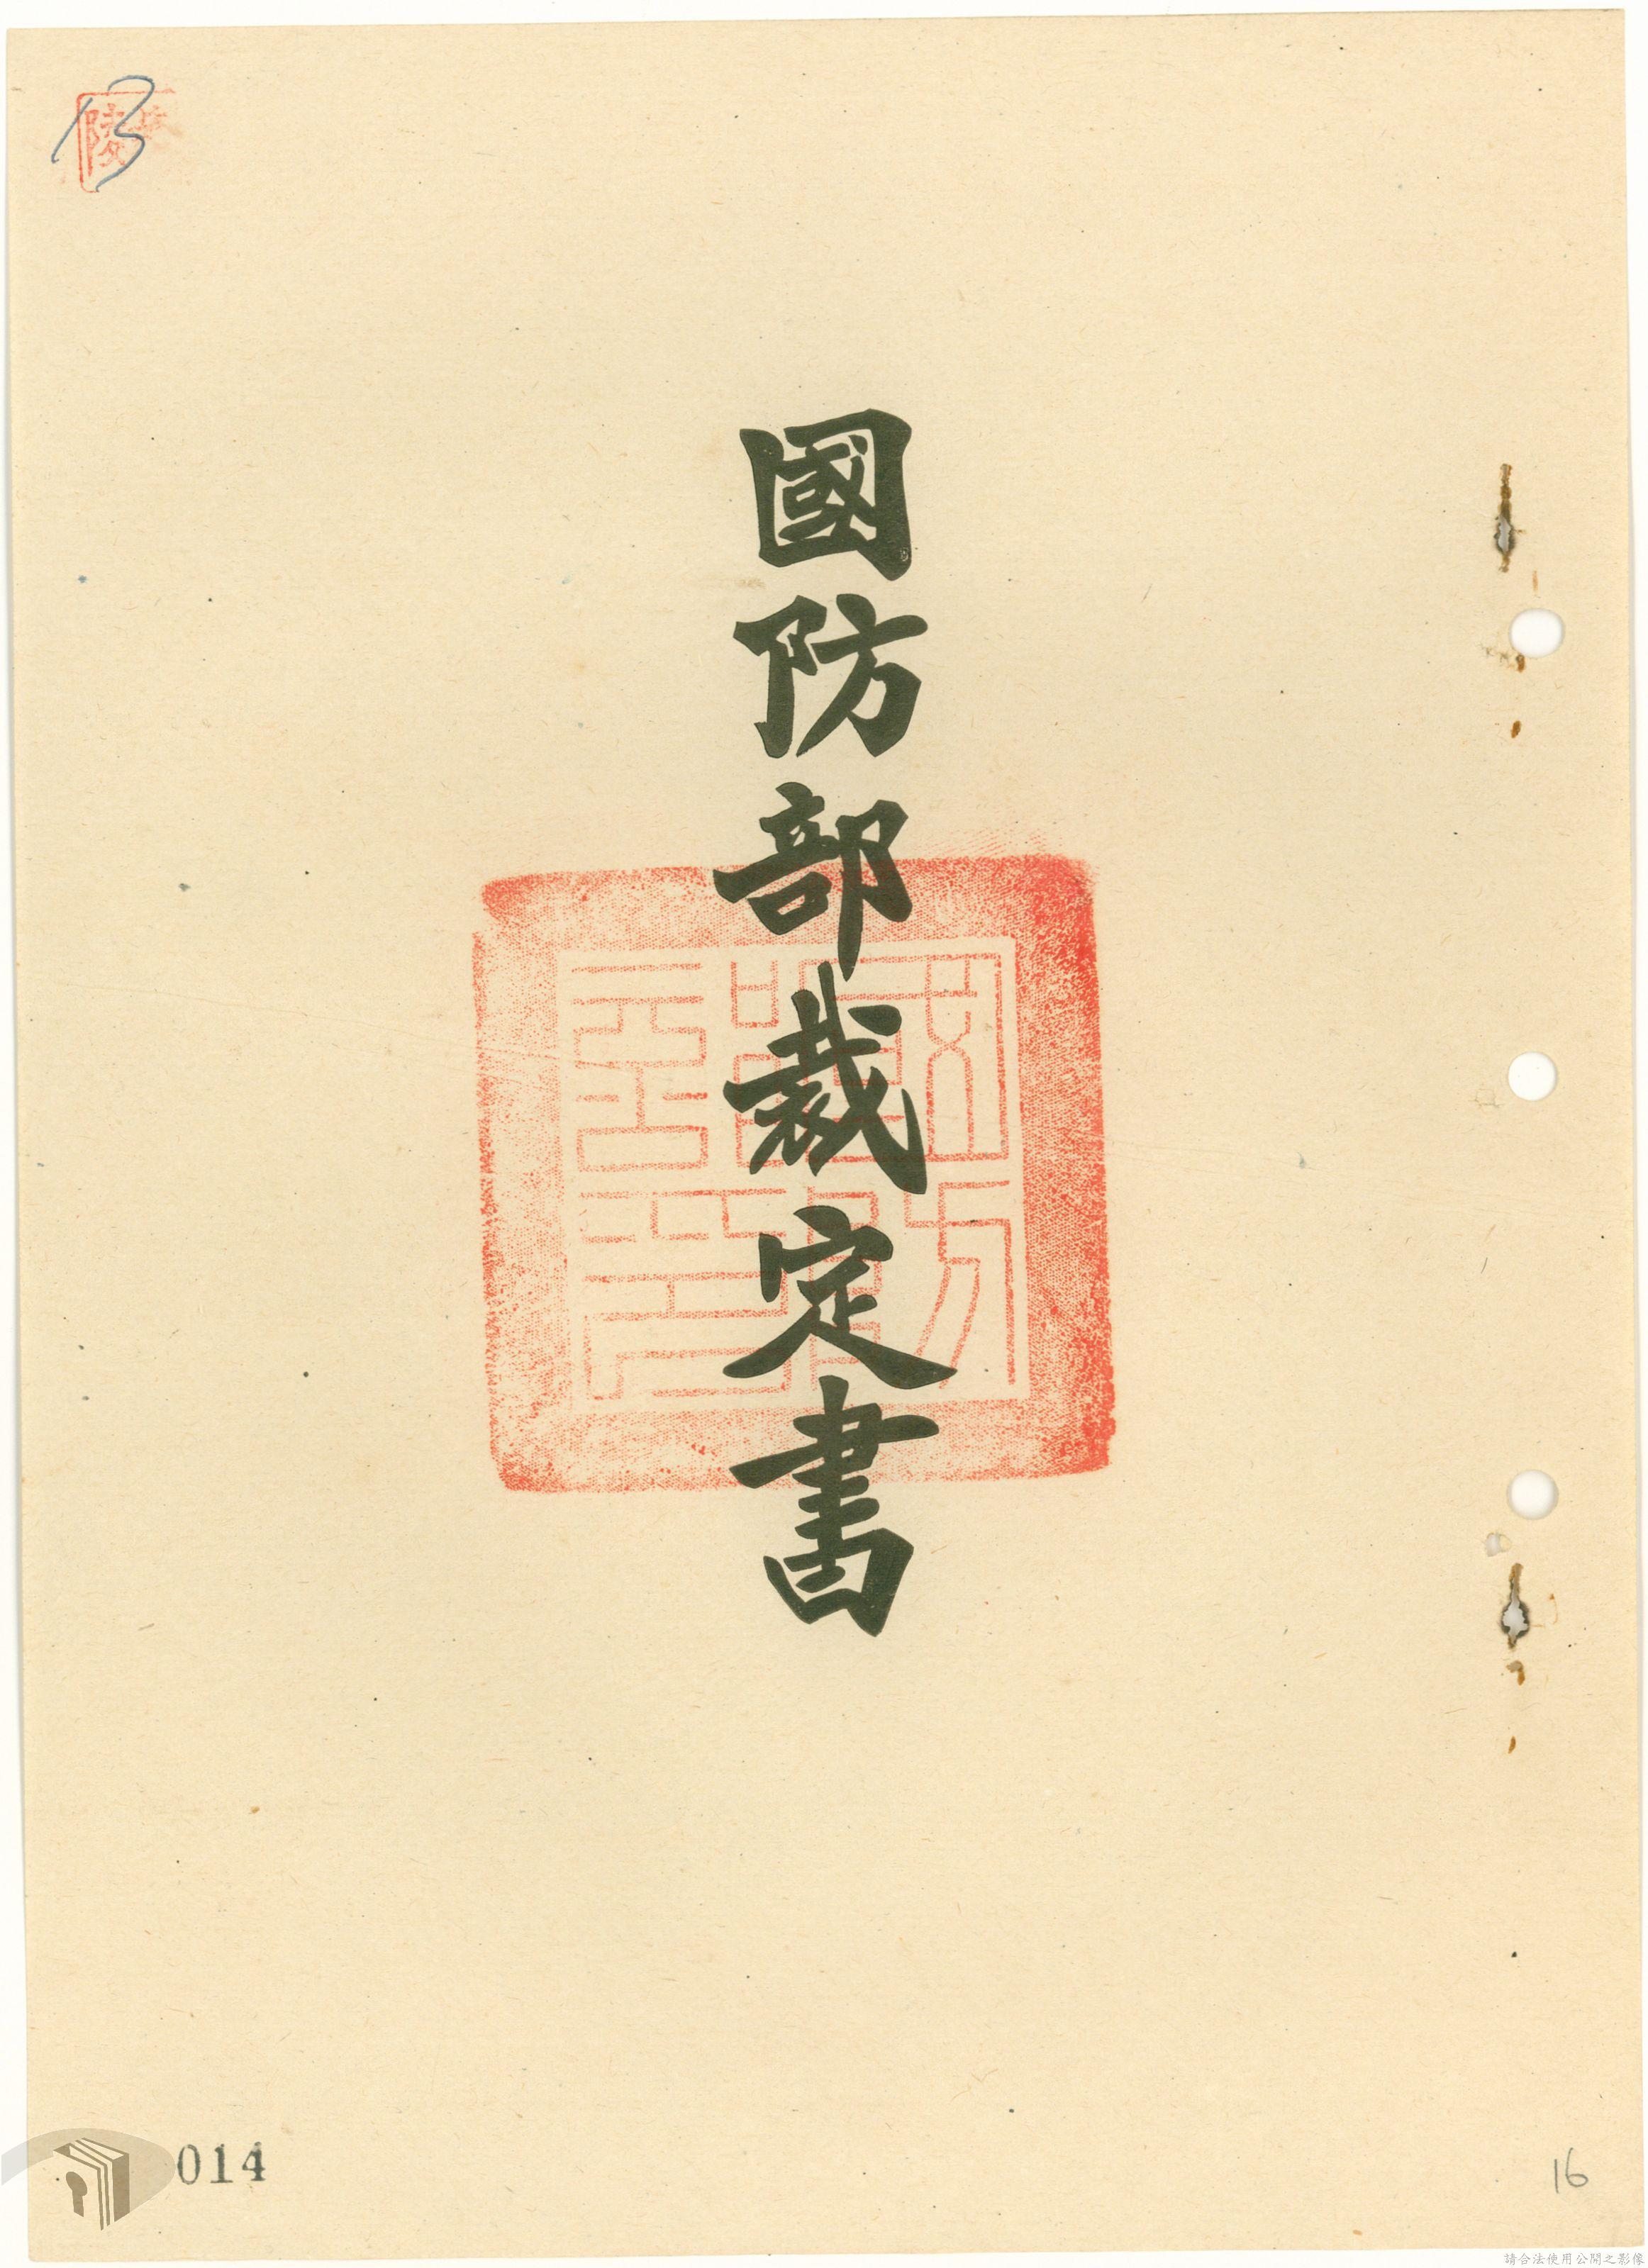 13
陵
國防部裁定書
014
16
請合法使用公開之影像